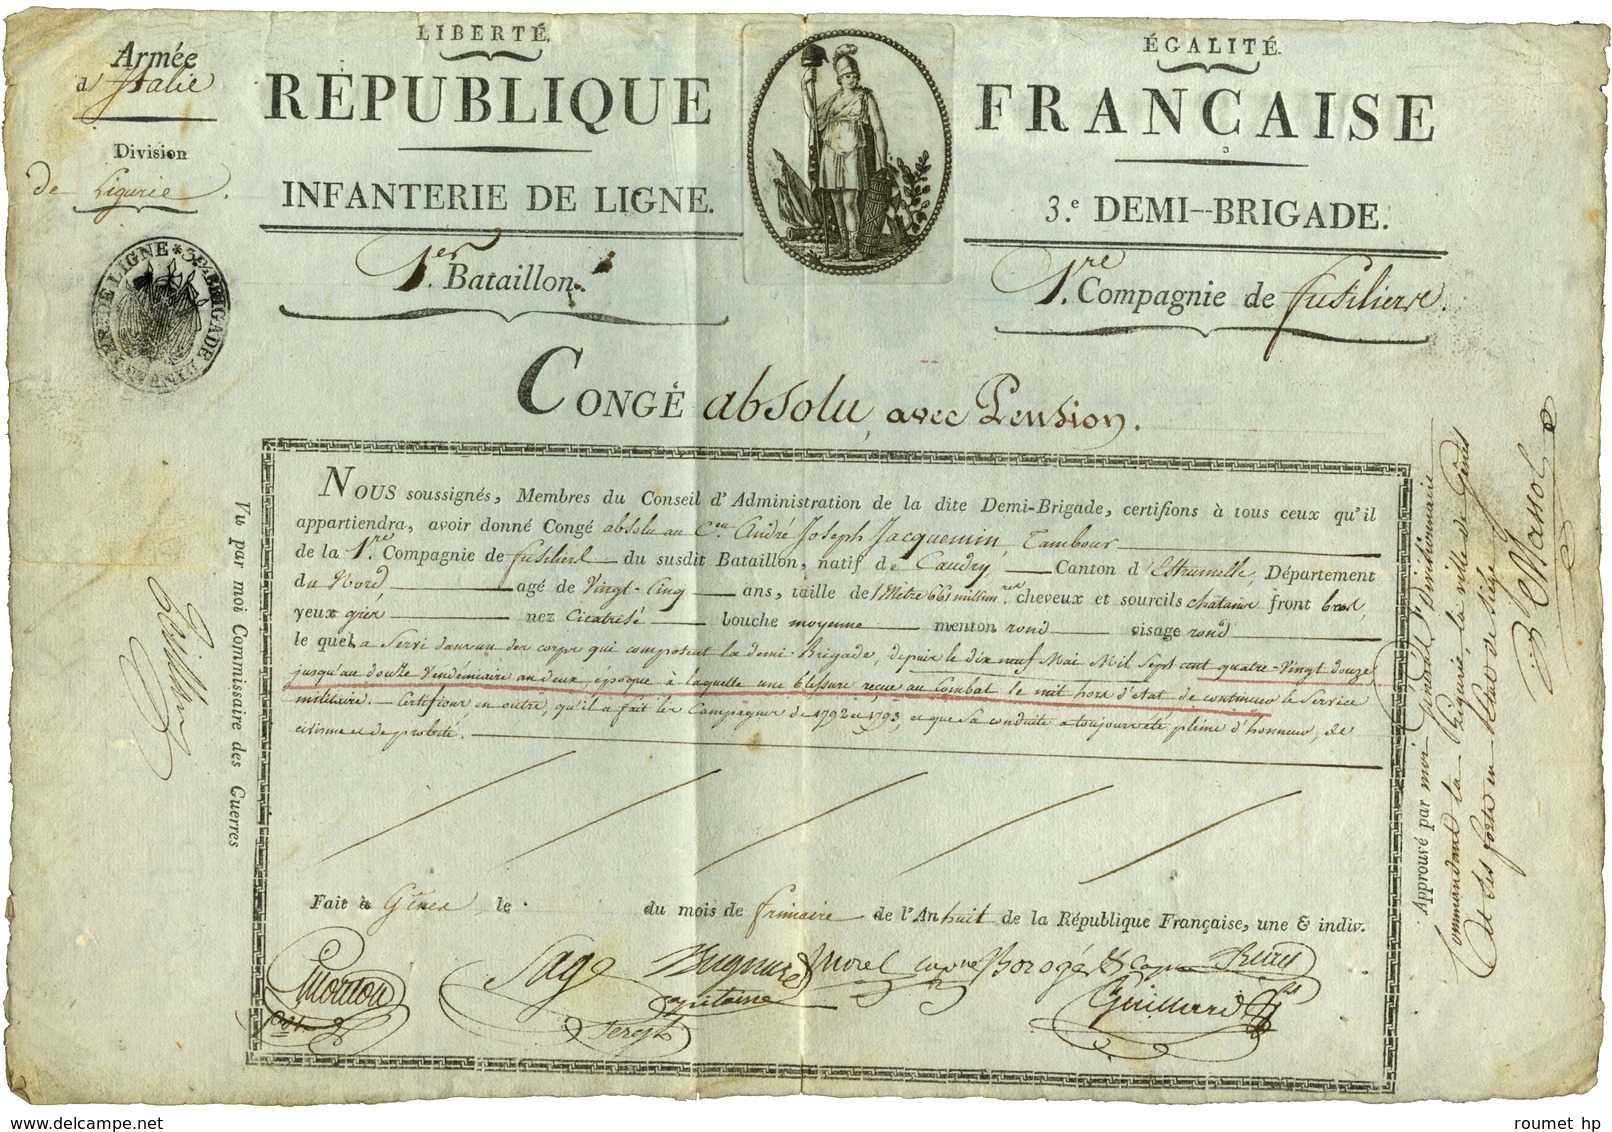 Armée
d'Italie
Division
de Ligurie.
LIBERTÉ.
ÉGALITÉ.
RÉPUBLIQUE FRANÇAISE
INFANTERIE DE LIGNE.
3.e DEMI-BRIGADE.
1.er Bataillon.
1.re Compagnie de fusiliers.
CONGÉ absolu, avec Pension.
NOUS soussignés, Membres du Conseil d'Administration de la dite Demi-Brigade, certifions à tous ceux qu'il
appartiendra, avoir donné Congé absolu au C.en André Joseph Jacquemin, Tambour
de la 1.re Compagnie de fusiliers du susdit Bataillon, natif de Caudry, Canton d'Estrumelle, Département
du Nord, agé de Vingt-Cinq ans, taille de 1 Mètre 661 millim.res cheveux et sourcils chatains front bas,
yeux gris nez Cicatrisé bouche moyenne menton rond visage rond
le quel a Servi dans un des corps qui composent la demi-Brigade, depuis le dix neuf Mai Mil Sept cent quatre-Vingt douze
jusqu'au douze Vendémiaire an deux, époque à laquelle une blessure reçue au Combat le mit hors d'état de continuer le Service
militaire. Certifions en outre, qu'il a fait les Campagnes de 1792 et 1793, et que sa conduite a toujours été pleine d'honneur, de
civisme et de probité.
Fait à Gênes le du mois de frimaire de l'An huit de la République Française, une & indiv.
Mouton
Sage
capitaine
Morel
Guillard
Vu par moi Commissaire des Guerres
Approuvé par moi Général Divisionnaire
Commandant la Ligurie, la ville de Gênes
et ses forts en état de siège